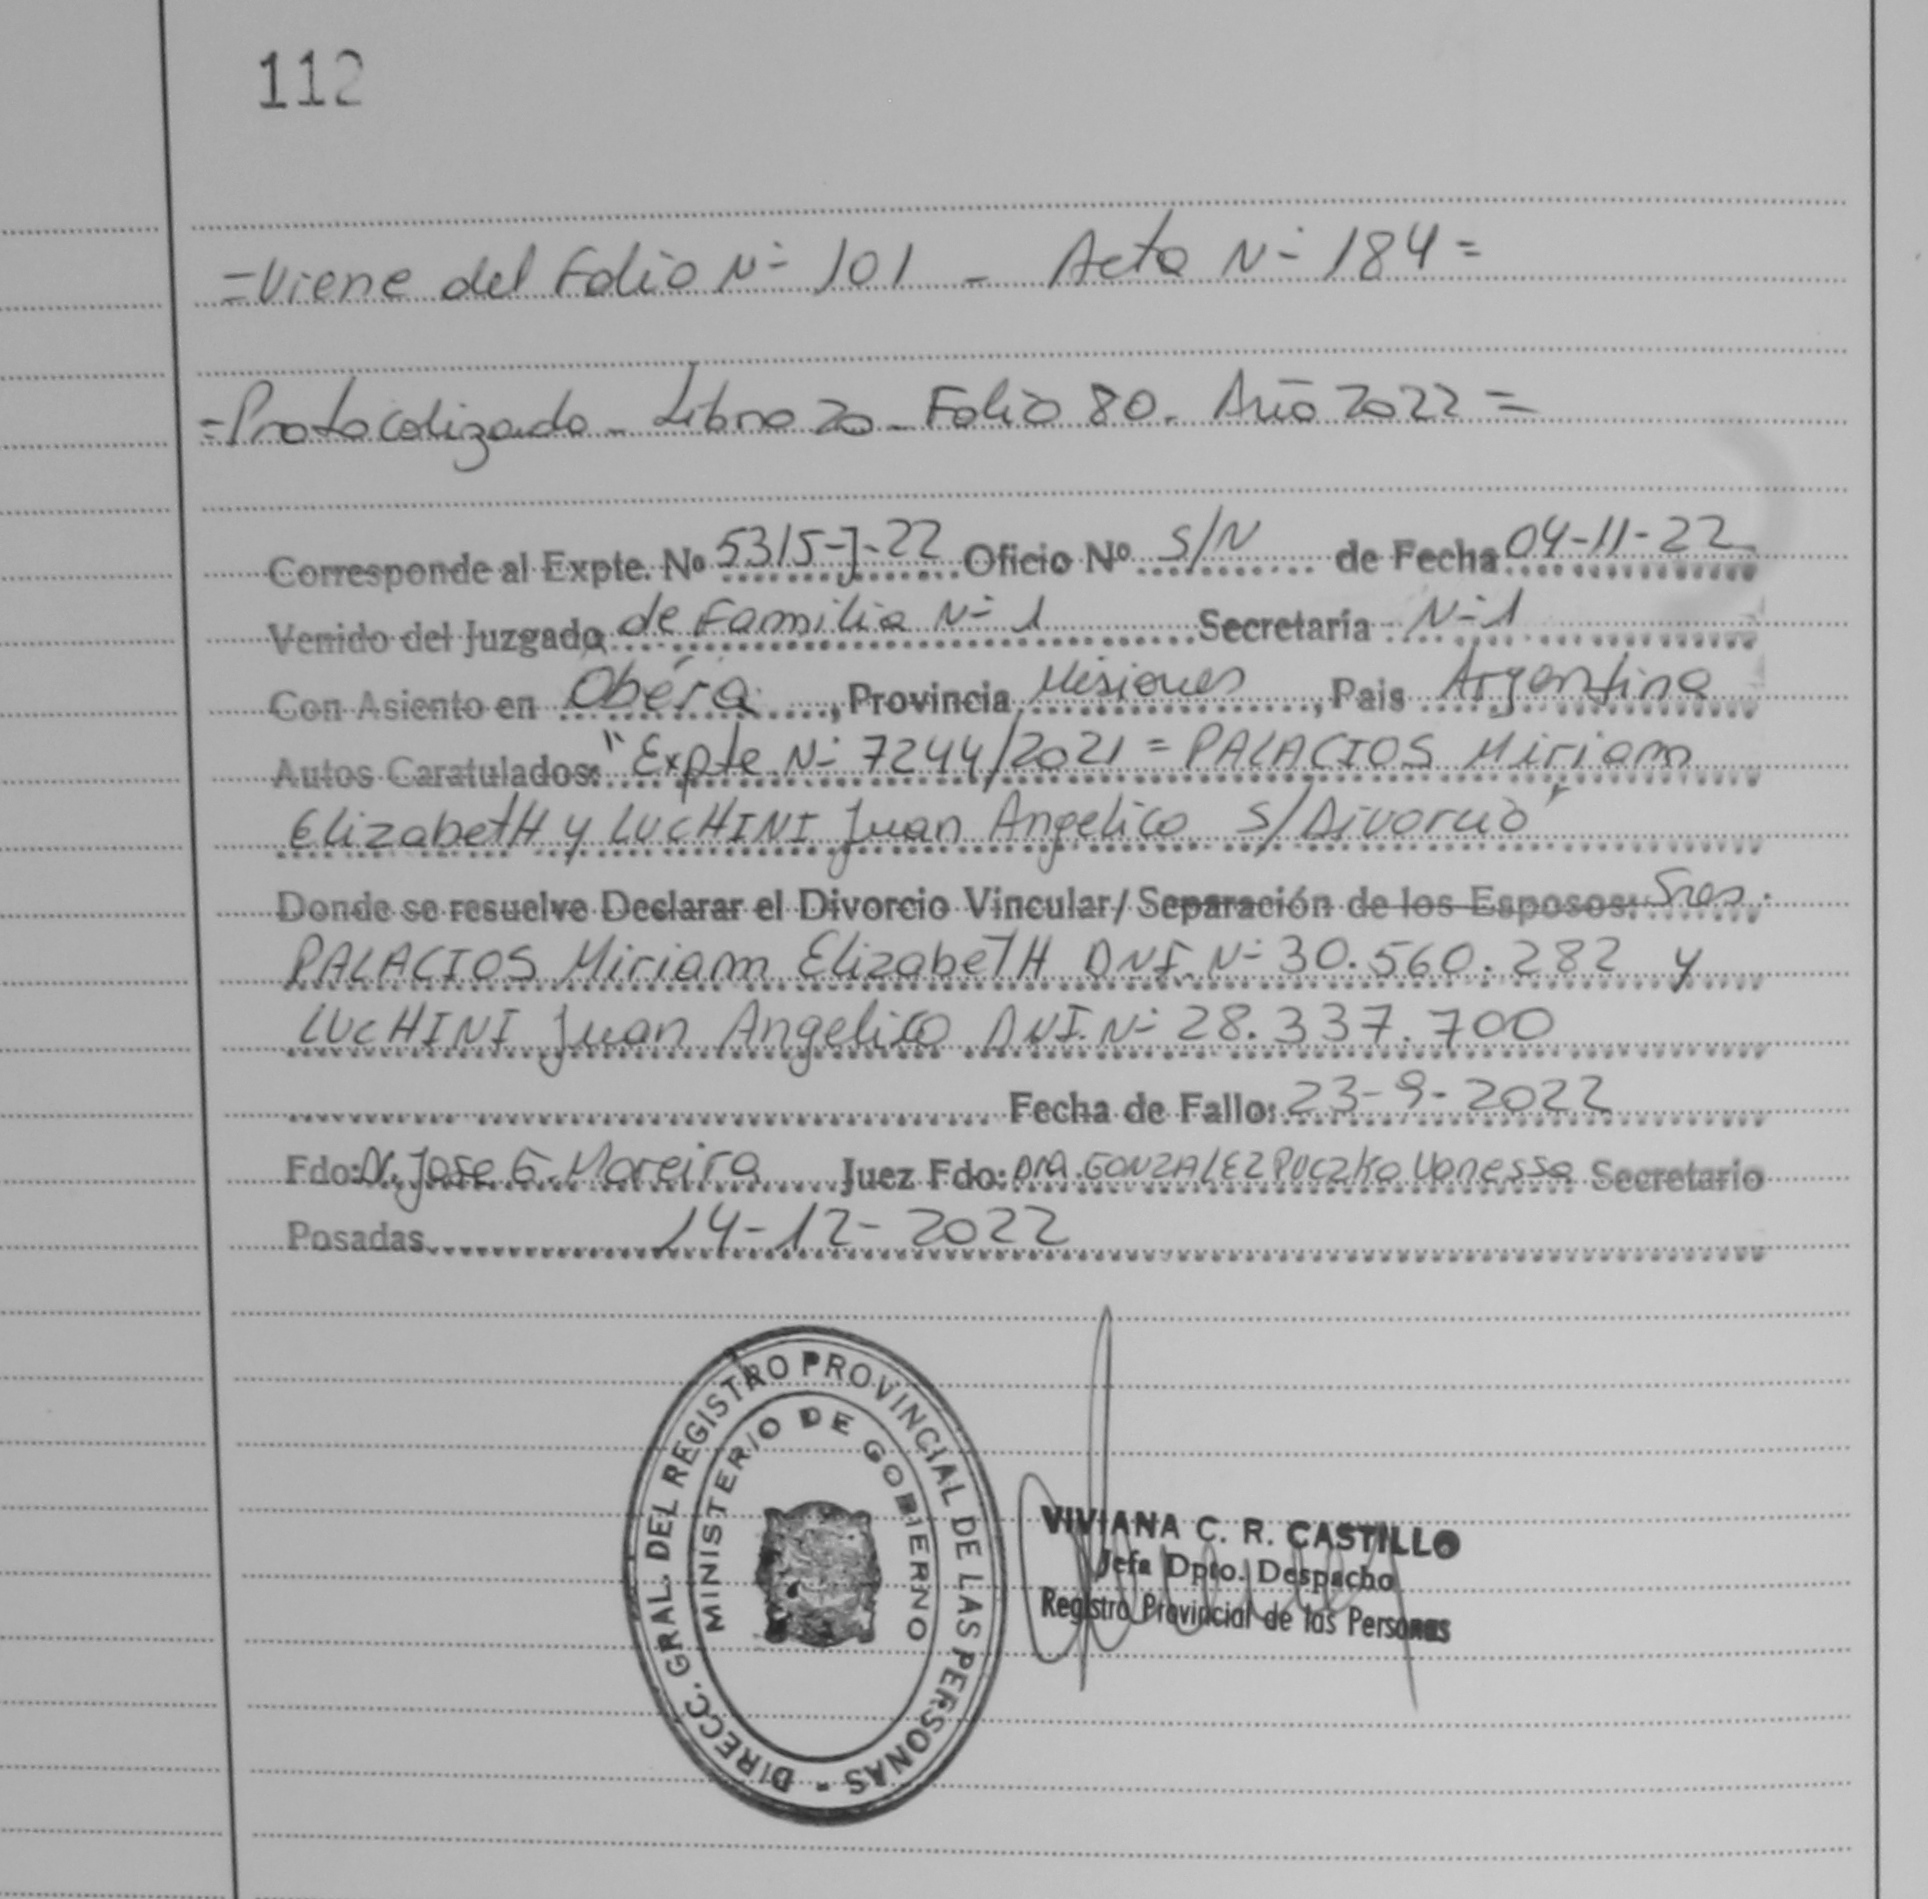 112
=Viene del Folio Nº 101 - Acta Nº 184=
=Protocolizado - Libro 20 - Folio 80. Año 2022=
Corresponde al Expte. Nº 5315-J-22 Oficio Nº S/N de Fecha 04-11-22
Venido del Juzgado de Familia Nº 1 Secretaría Nº 1
Con Asiento en Oberá, Provincia Misiones, Pais Argentina
Autos Caratulados: "Expte Nº 7244/2021 = PALACIOS Miriam
ElizabetH y LUcHINI Juan Angelico S/Divorcio"
Donde se resuelve Declarar el Divorcio Vincular/ Separación de los Esposos: Sres.
PALACIOS Miriam ElizabeTH DNI. Nº 30.560.282 y
LUcHINI Juan Angelico DNI. Nº 28.337.700
Fecha de Fallo: 23-9-2022
Fdo: Dr. Jose G. Moreira Juez Fdo: DRA. GONZALEZ PUCZKO Vanessa Secretario
Posadas 14-12-2022
DIRECC. GRAL. DEL REGISTRO PROVINCIAL DE LAS PERSONAS -
MINISTERIO DE GOBIERNO
VIVIANA C. R. CASTILLO
Jefa Dpto. Despacho
Registro Provincial de las Personas